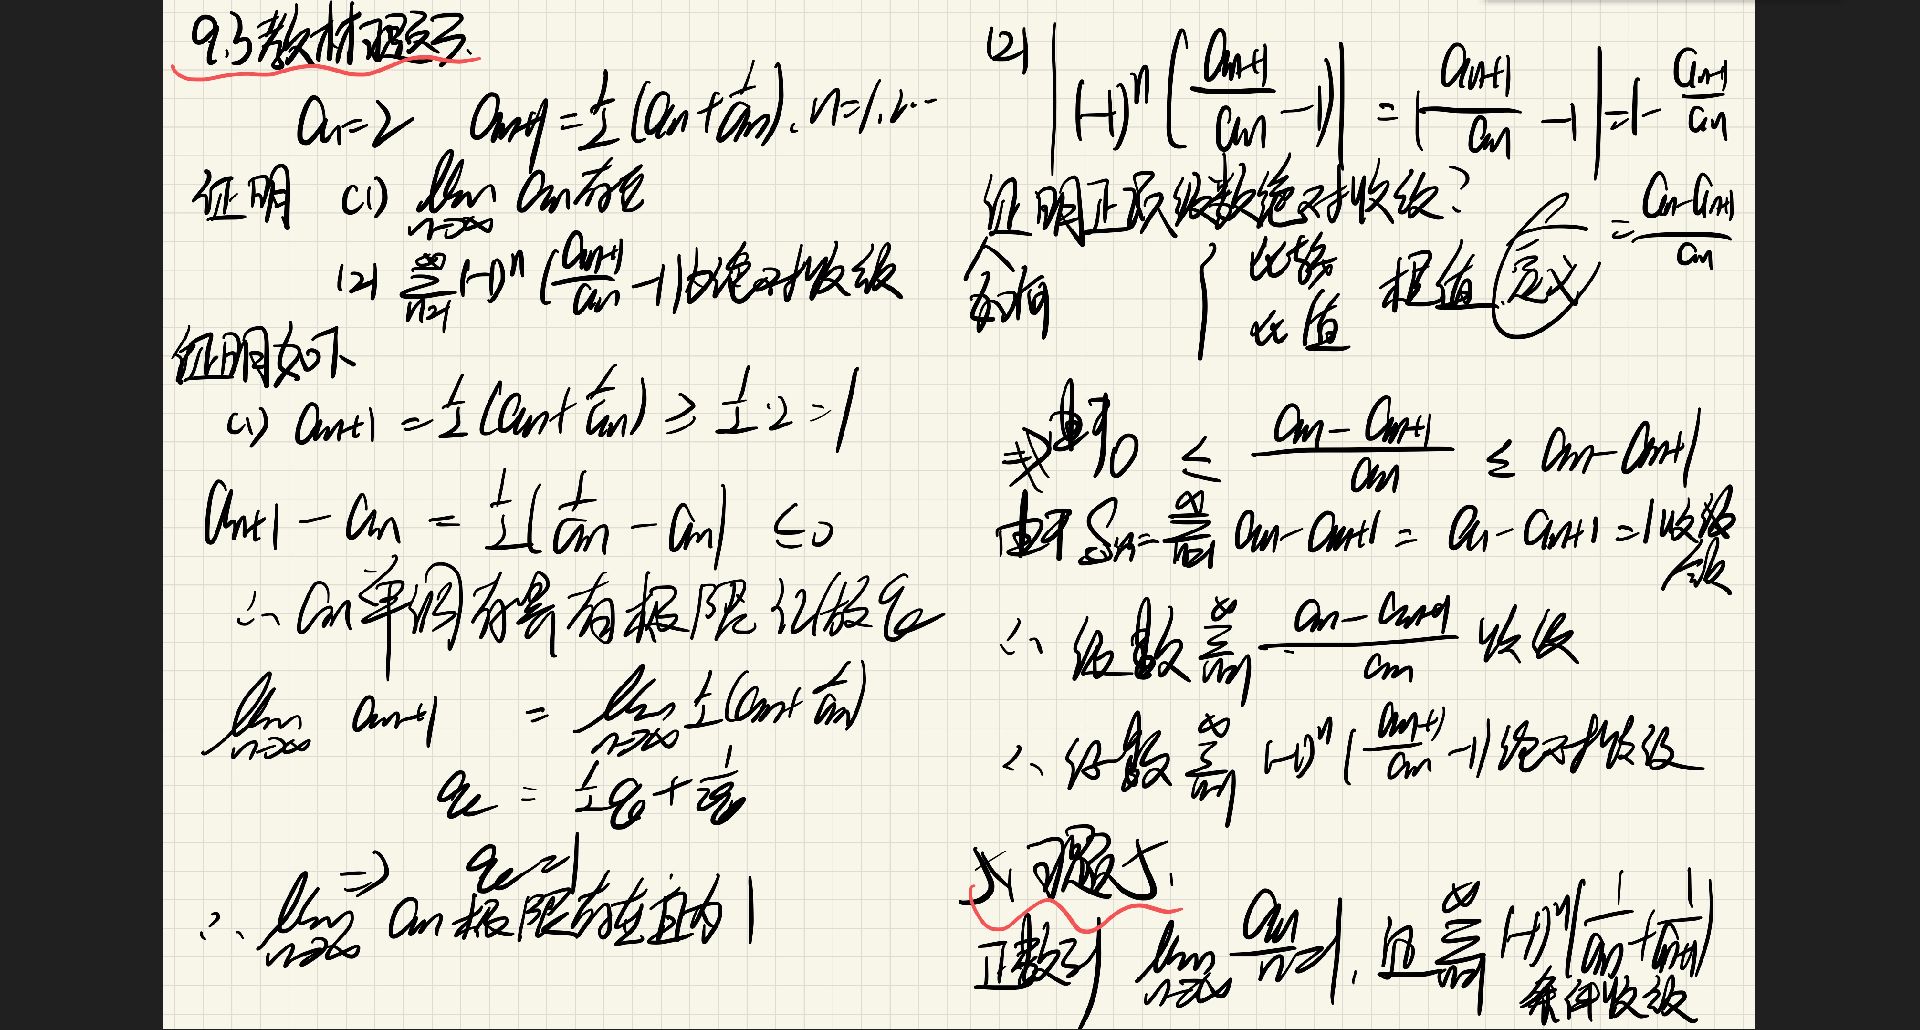 9.3教材习题3.
a₁=2 aₙ₊₁=½(aₙ+1/aₙ). n=1.2...
证明 (1) lim_{n→∞} aₙ存在
(2) ∑_{n=1}^{∞} (-1)ⁿ (aₙ₊₁/aₙ -1)为绝对收敛
证明如下
(1) aₙ₊₁ = ½(aₙ+1/aₙ) ≥ ½·2=1
aₙ₊₁ - aₙ = ½(1/aₙ - aₙ) ≤0
∴ aₙ单调有界 有极限 记做
lim_{n→∞} aₙ₊₁ = lim_{n→∞} ½(aₙ+1/aₙ)
⇒
∴ lim_{n→∞} aₙ极限存在且为1
(2) |(-1)ⁿ(aₙ₊₁/aₙ -1)| = |aₙ₊₁/aₙ -1| = 1- aₙ₊₁/aₙ
= (aₙ-aₙ₊₁)/aₙ
证明正项级数绝对收敛?
如何 { 比较 比值 根值 定义
由于 0 ≤ (aₙ-aₙ₊₁)/aₙ ≤ aₙ-aₙ₊₁
由于 Sₙ=∑_{n=1}^{∞} aₙ-aₙ₊₁ = a₁-aₙ₊₁ =1收敛
∴ 级数∑_{n=1}^{∞} (aₙ-aₙ₊₁)/aₙ 收敛
∴ 级数∑_{n=1}^{∞} (-1)ⁿ(aₙ₊₁/aₙ -1)绝对收敛
习题5.
正数列 lim_{n→∞} aₙ/n=1, 且∑_{n=1}^{∞} (-1)ⁿ(1/aₙ+1/aₙ₊₁)
条件收敛